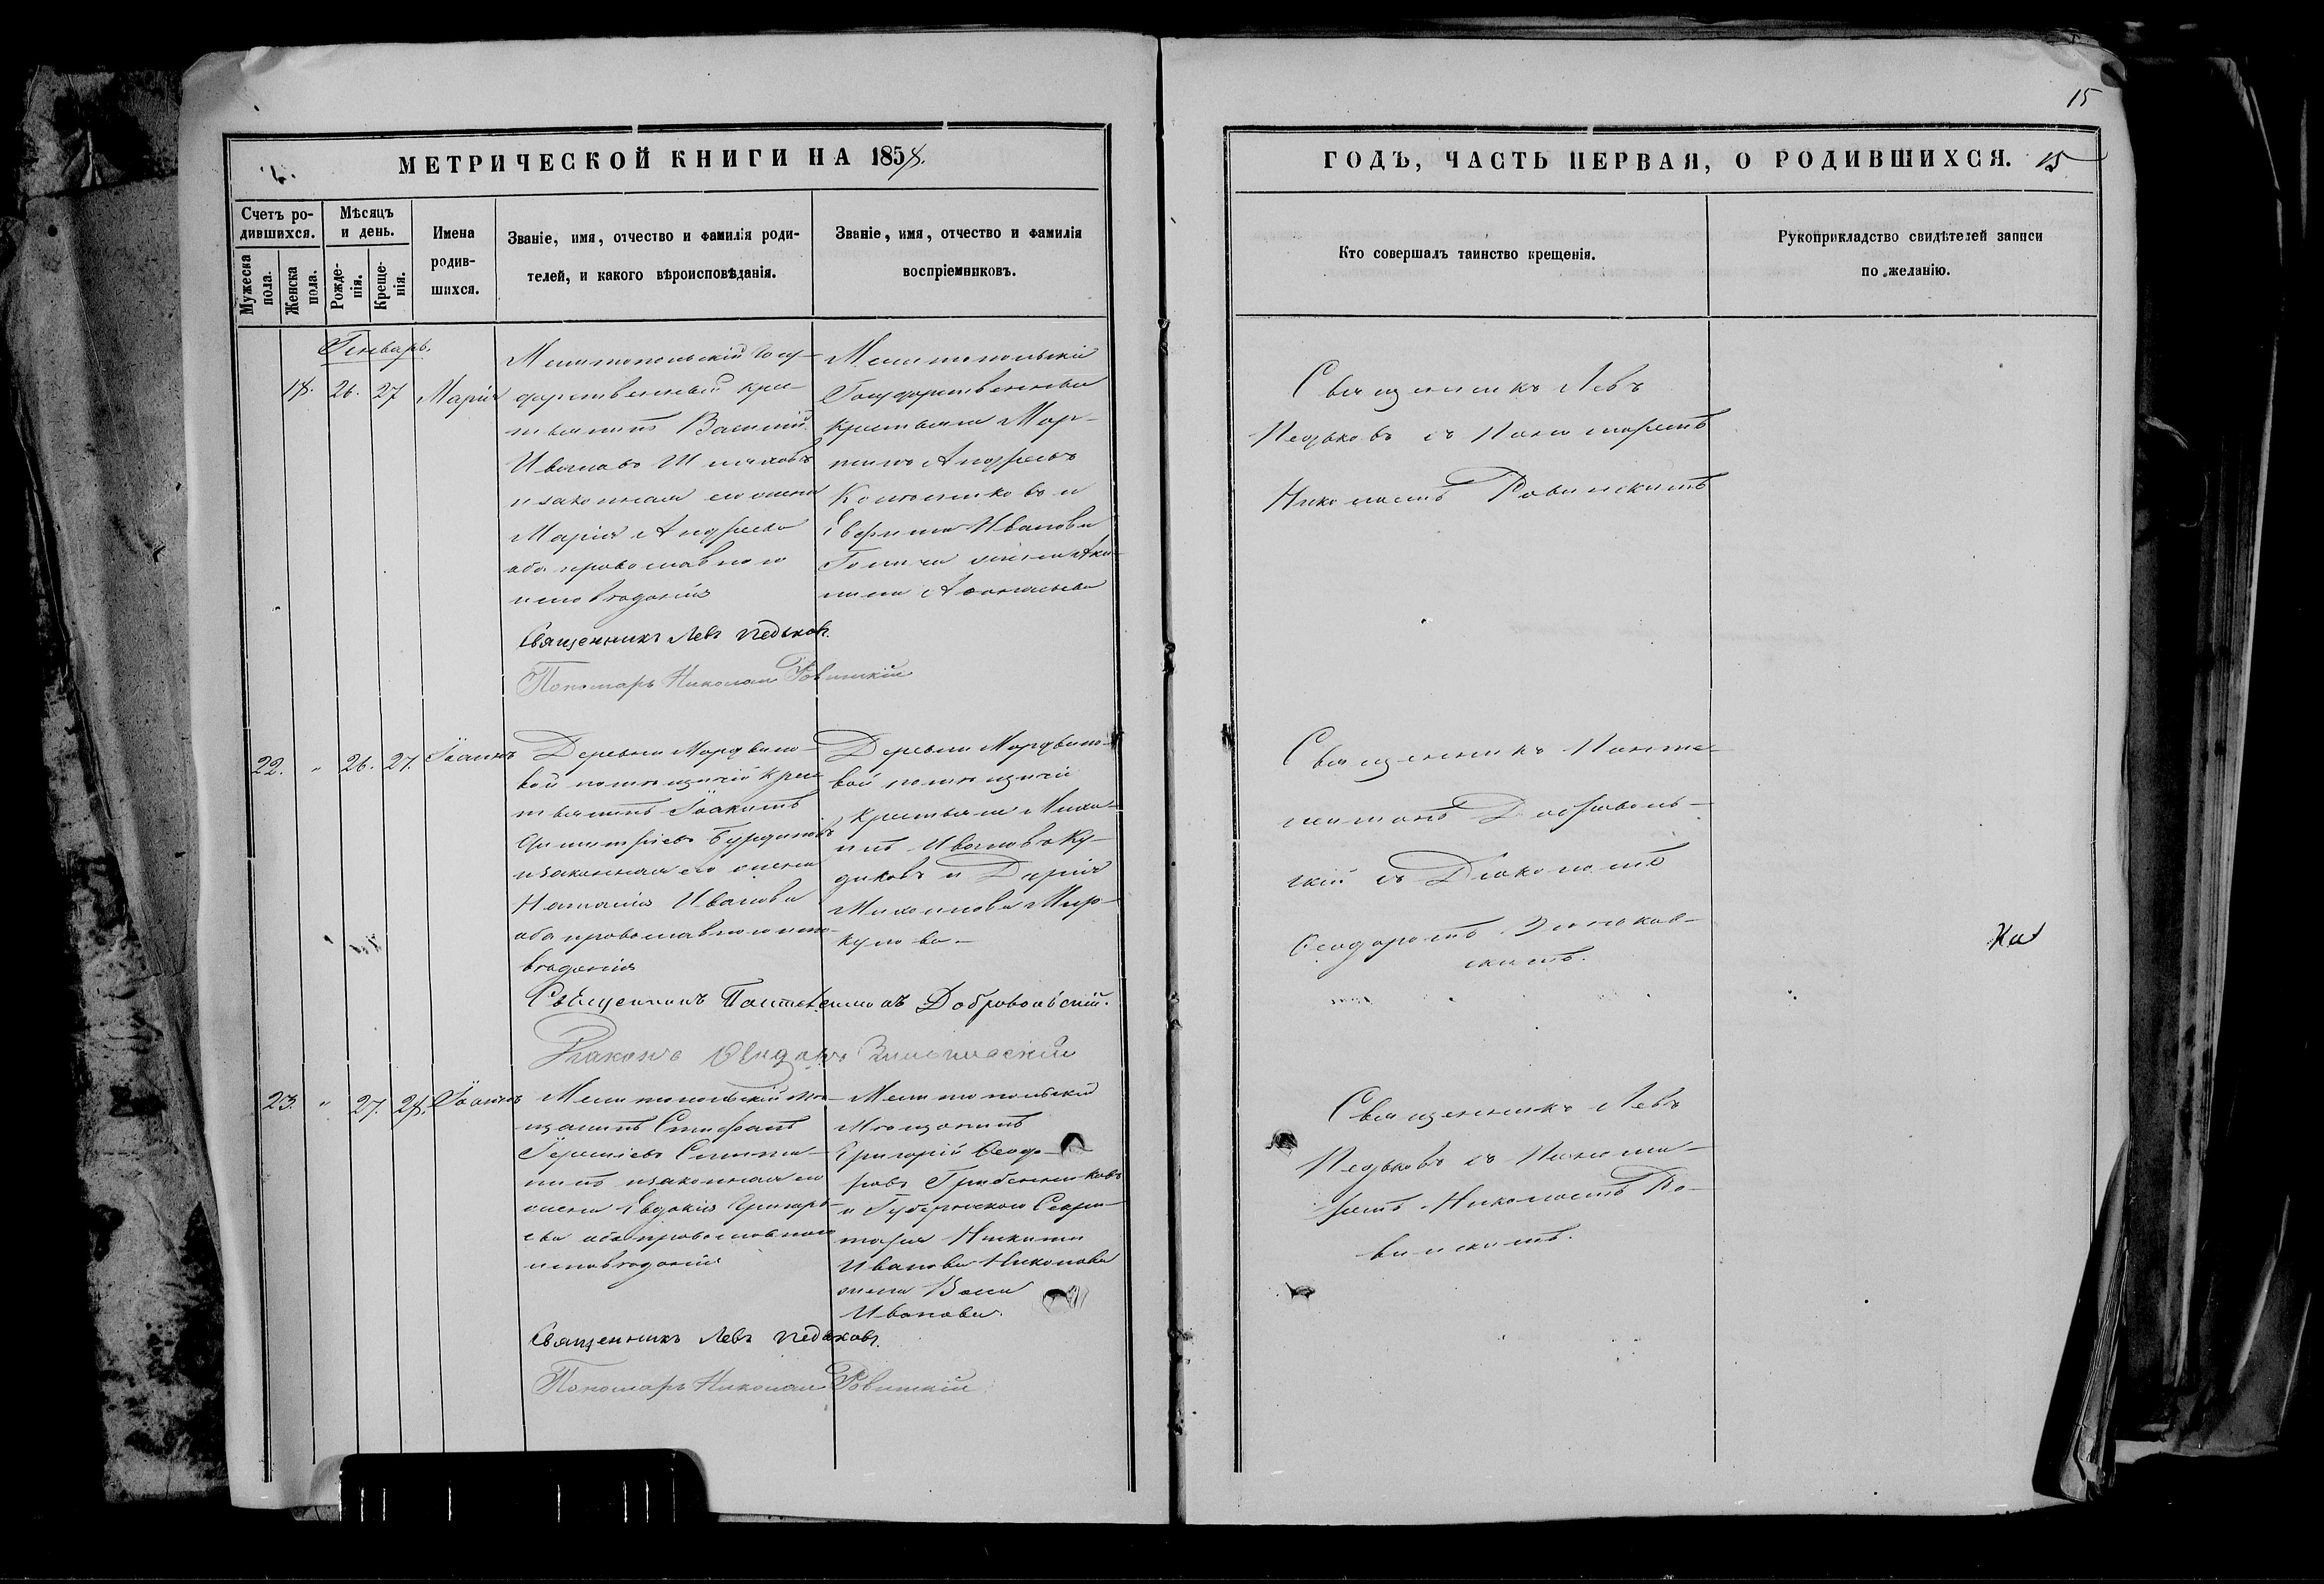 15
МЕТРИЧЕСКОЙ КНИГИ НА 1858.
ГОДЪ, ЧАСТЬ ПЕРВАЯ, О РОДИВШИХСЯ. 15
Счетъ ро-
дившихся.
Мѣсяцъ
и день.
Мужеска
пола.
Женска
пола.
Рожде-
нія.
Креще-
нія.
Имена
родив-
шихся.
Званіе, имя, отчество и фамилія роди-
телей, и какого вѣроисповѣданія.
Званіе, имя, отчество и фамилія
воспріемниковъ.
Кто совершалъ таинство крещенія.
Рукоприкладство свидѣтелей записи
по желанію.
Генварь.
18. 26. 27 Марія
Мелитопольскій Госу-
дарственный кре-
стьянинъ Василий
Ивановъ
и законная его жена
Марія Андреева
оба православного
исповѣданія
Мелитопольскій
Государственный
крестьянин Мар-
тинъ Андреевъ
и
Иванова
жена
Священникъ Левъ
Педьковъ съ Пономаремъ
Николаемъ Ровинскимъ
Священникъ Левъ Педьковъ.
Пономарь Николай Ровинскій
22. " 26. 27. Іоаннъ
Деревни Мордвино-
вой помѣщичій крес-
тьянинъ Іоакимъ
Димитріевъ
и законная его жена
Наталія Иванова
оба православного испо-
вѣданія
Деревни Мордвино-
вой помѣщичій
крестьянин Миха-
илъ Ивановъ Ку-
диковъ и Дарія
Михаилова Мир-
кулова
Священникъ Панте-
леимонъ Доброволь-
скій съ Діакономъ
Феодоромъ Зиньков-
скимъ.
Ка
Священникъ Пантелеимонъ Добровольскій.
Діаконъ Феодоръ Зиньковскій
23. " 27. 28. Іоаннъ
Мелитопольскій мѣ-
щанинъ Стефанъ
и законная его
жена Евдокія Григорь-
ева оба православного
исповѣданія
Мелитопольскій
Мѣщанинъ
Григорій Феодо-
ровъ Гребенниковъ
и Губернского Секре-
таря Никиты
Иванова Николаева
жена
Иванова.
Священникъ Левъ
Педьковъ съ Понома-
ремъ Николаемъ Ро-
винскимъ.
Священникъ Левъ Педьковъ.
Пономарь Николай Ровинскій